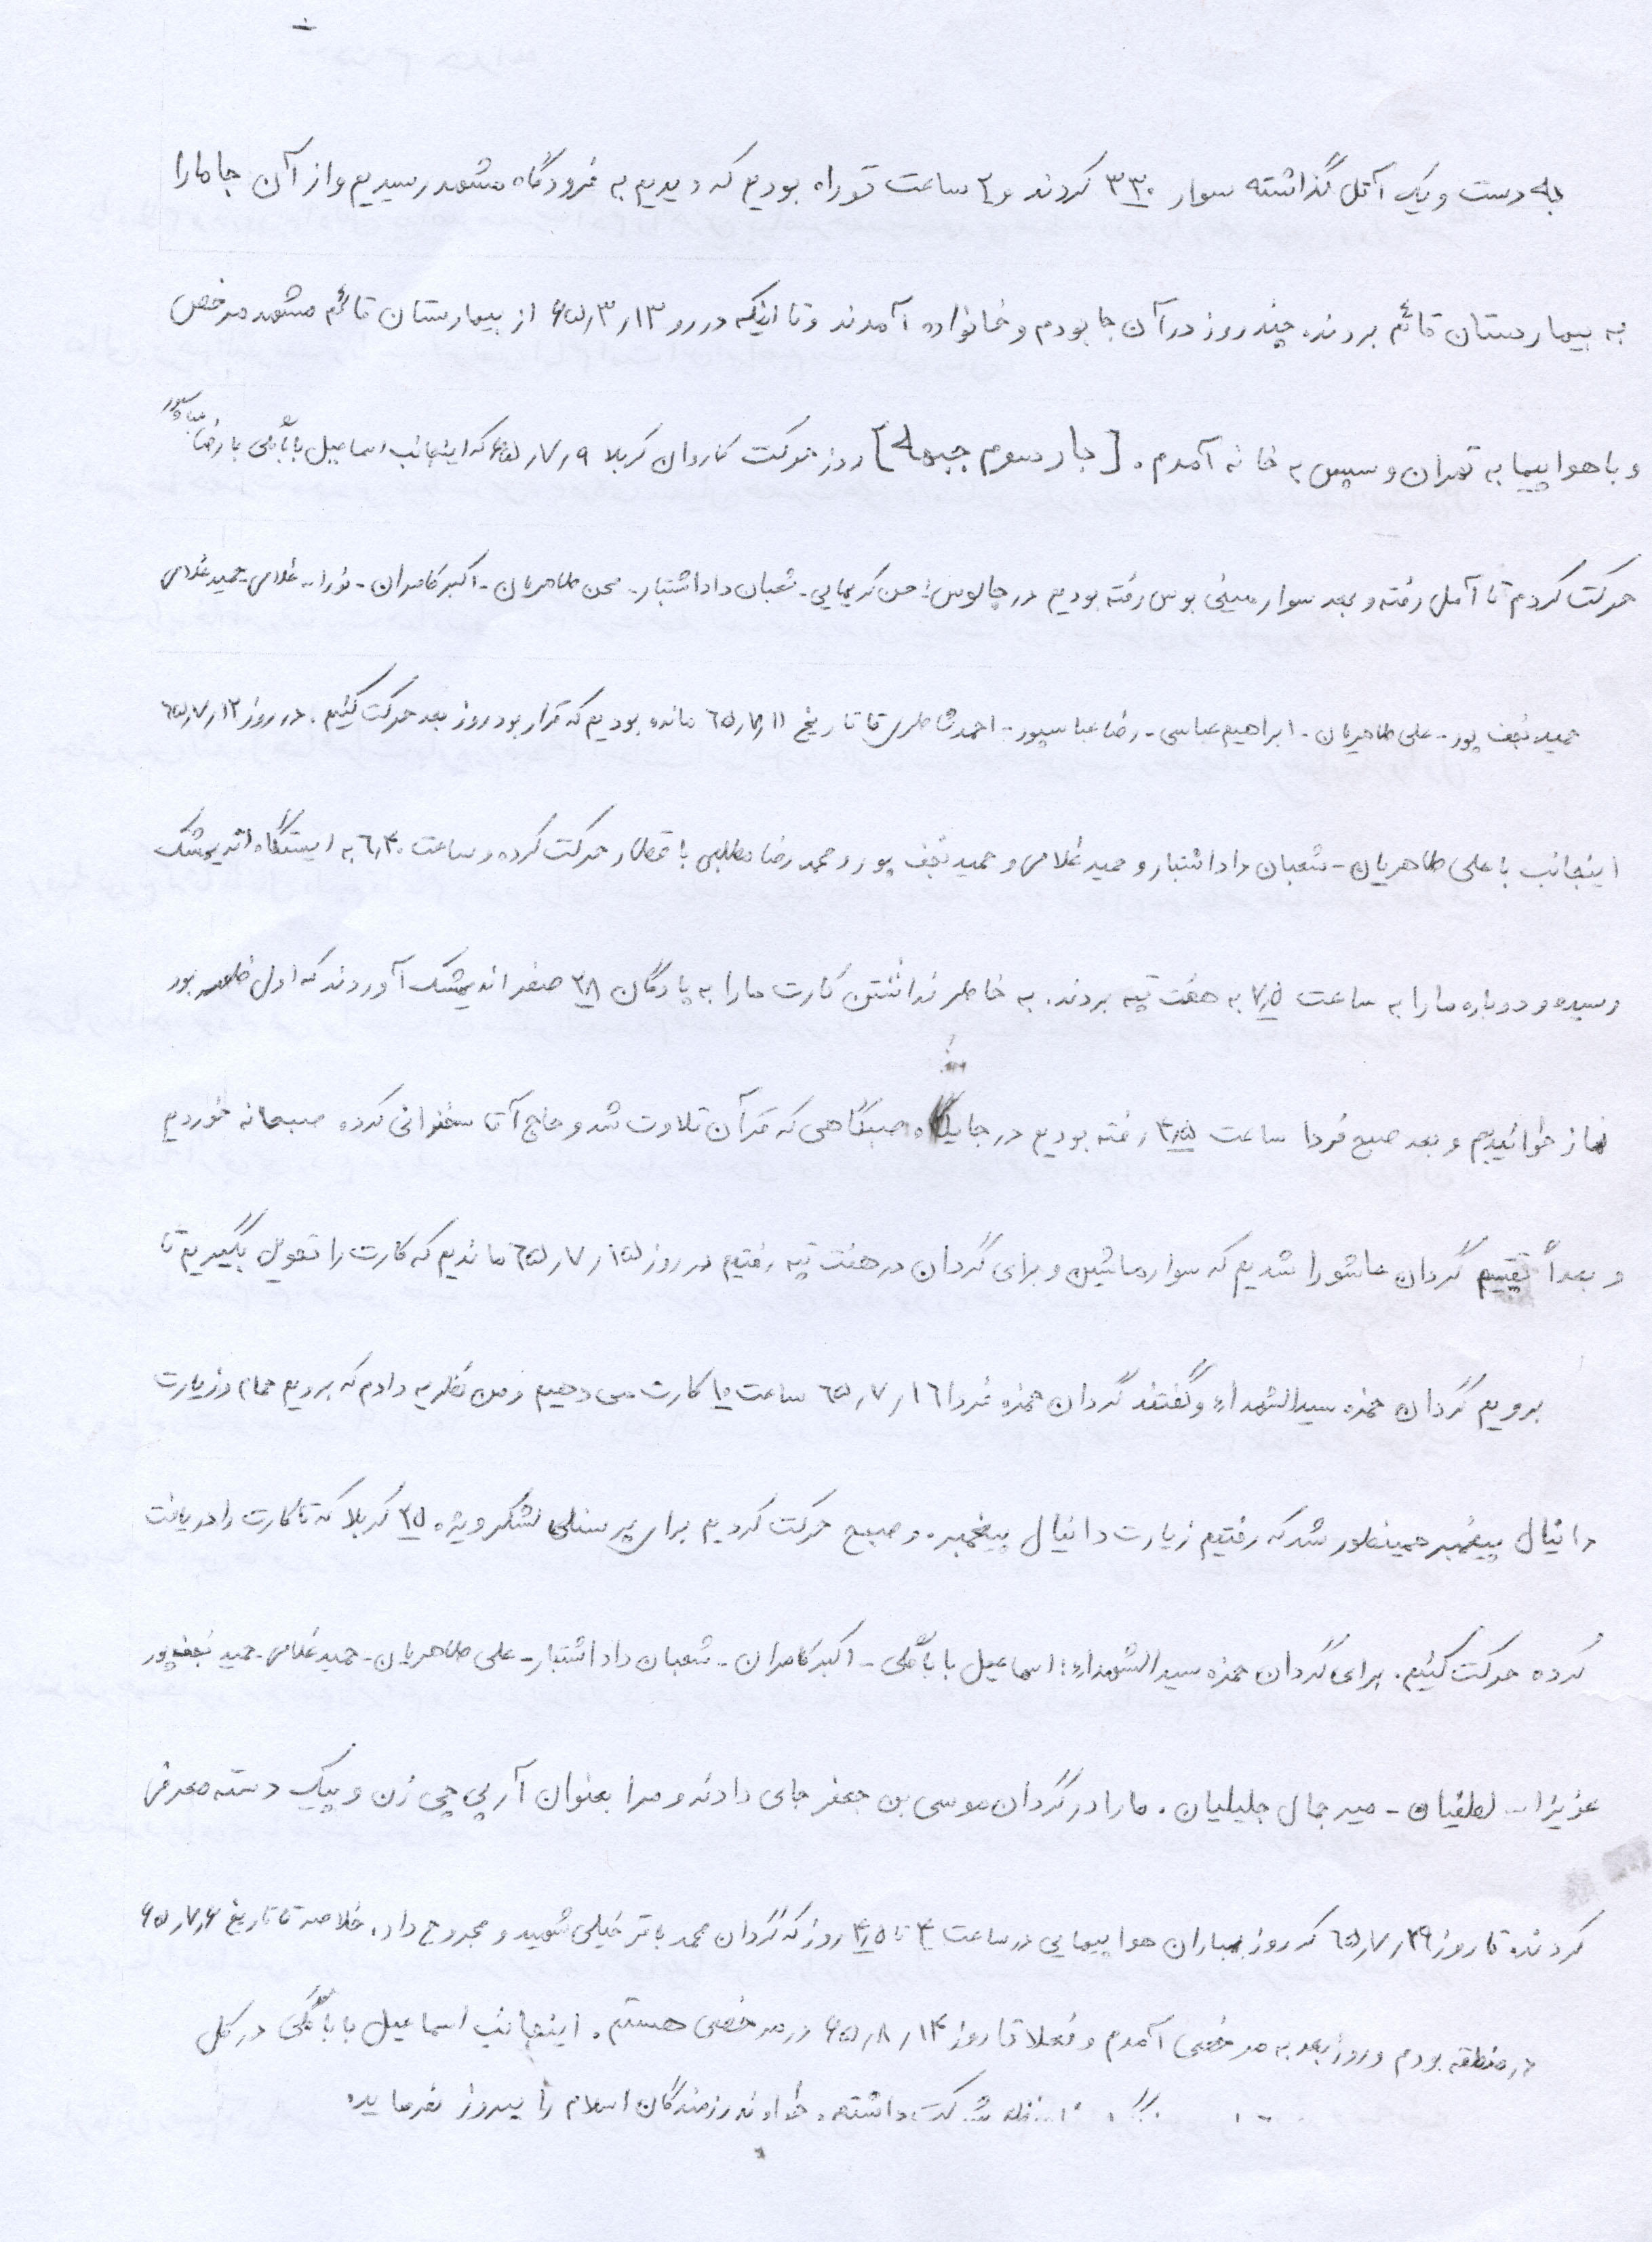 به دست ویک آتل گذاشته سوار ۳۳۰ کردند و ۲ ساعت تو راه بودیم که دیدیم به فرودگاه مشهد رسیدیم و از آن جا ما را
به بیمارستان قائم بردند. چند روز در آن جا بودم و خانواده آمدند و تا اینکه در رو ۶۵٫۳٫۱۳ از بیمارستان قائم مشهد مرخص
و با هواپیما به تهران و سپس به خانه آمدم. [بار سوم جبهه] روز حرکت کاروان کربلا ۶۵٫۷٫۹ که اینجانب اسماعیل بابأگلی با رضا عباسپور
حرکت کردم تا آمل رفته و بعد سوار مینی بوس رفته بودیم در چالوس: حسن کریمایی - شعبان داداشتبار - محسن طاهریان - اکبر کامران - نورا... غلامی حمید غلامی
حمید نجف پور - علی طاهریان - ابراهیم عباسی - رضا عباسپور - احمد شاطری تا تاریخ ۶۵٫۷٫۱۱ مانده بودیم که قرار بود روز بعد حرکت کنیم. در روز ۶۵٫۷٫۱۲
اینجانب با علی طاهریان - شعبان داداشتبار و حمید غلامی و حمید نجف پور و محمد رضا مطلبی با قطار حرکت کرده و ساعت ۶٫۳۰ به ایستگاه اندیمشک
رسیده و دوباره ما را به ساعت ۷٫۵ به هفت تپه بردند. به خاطر نداشتن کارت ما را به پادگان ۲۸ صفر اندیمشک آوردند که اول ظهر بود
نماز خواندیم و بعد صبح فردا ساعت ۴٫۵ رفته بودیم در جایگاه صبگاهی که قرآن تلاوت شد و حاج آقا سخنرانی کرده صبحانه خوردیم
و بعداً تقسیم گردان عاشورا شدیم که سوار ماشین و برای گردان در هفت تپه رفتیم در روز ۶۵٫۷٫۱۵ ماندیم که کارت را تحویل بگیریم تا
برویم گردان حمزه سیدالشهداء و گفتند گردان حمزه فردا ۶۵٫۷٫۱۶ ساعت ۱۰ کارت می دهیم و من نظریه دادم که برویم حمام و زیارت
دانیال پیغمبر همینطور شد که رفتیم زیارت دانیال پیغمبر. و صبح حرکت کردیم برای پرسنلی لشکر ویژه ۲۵ کربلا که تا کارت را دریافت
کرده حرکت کنیم. برای گردان حمزه سیدالشهداء: اسماعیل بابأگلی - اکبر کامران - شعبان داداشتبار - علی طاهریان - حمید غلامی حمید نجف پور
عزیزا... لطفیان - میر جمال جلیلیان. ما را در گردان موسی بن جعفر جای دادند و مرا بعنوان آرپی چی زن و پیک دسته معرفی
کردند تا روز ۶۵٫۷٫۲۹ که روز بمباران هواپیمایی در ساعت ۴ تا ۴٫۵ روز که گردان محمد باقر خیلی شهید و مجروح داد. خلاصه تا تاریخ ۶۵٫۷٫۶
در منطقه بودم و روز بعد به مرخصی آمدم و فعلا تا روز ۶۵٫۸٫۱۴ در مرخصی هستم. اینجانب اسماعیل بابأگلی در کل
شرکت داشتم. خداوند رزمندگان اسلام را پیروز بفرماید